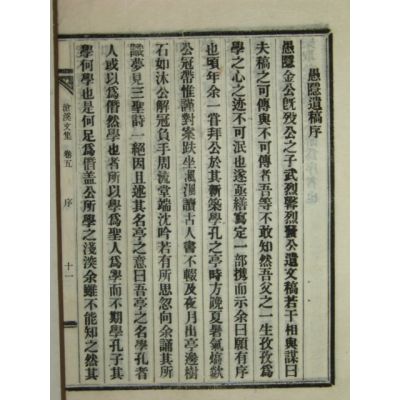 愚隱遺稿序
愚隱金公旣歿公之子武烈馨烈蒐公遺文稿若干相與謀曰
夫稿之可傳與不可傳者吾等不敢知然吾父之一生孜孜爲
學之心之迹不可泯也遂亟繕寫定一部携而示余曰願有序
也頃年余一嘗拜公於其新築學孔之亭時方晚夏暑氣熇歊
公冠帶惟謹對案趺坐渢渢讀古人書不輟及夜月出亭邊樹
石如沐公解冠負手周流堂端沈吟若有所思忽向余誦其所
識夢見三聖詩一絕因且述其名亭之意曰吾亭之名學孔者
人或以爲僭然學也者所以學爲聖人爲學而不期學孔子其
學何學也是何足爲僭盖公所學之淺深余雖不能知之然其
滄溪文集 卷五 序 十一